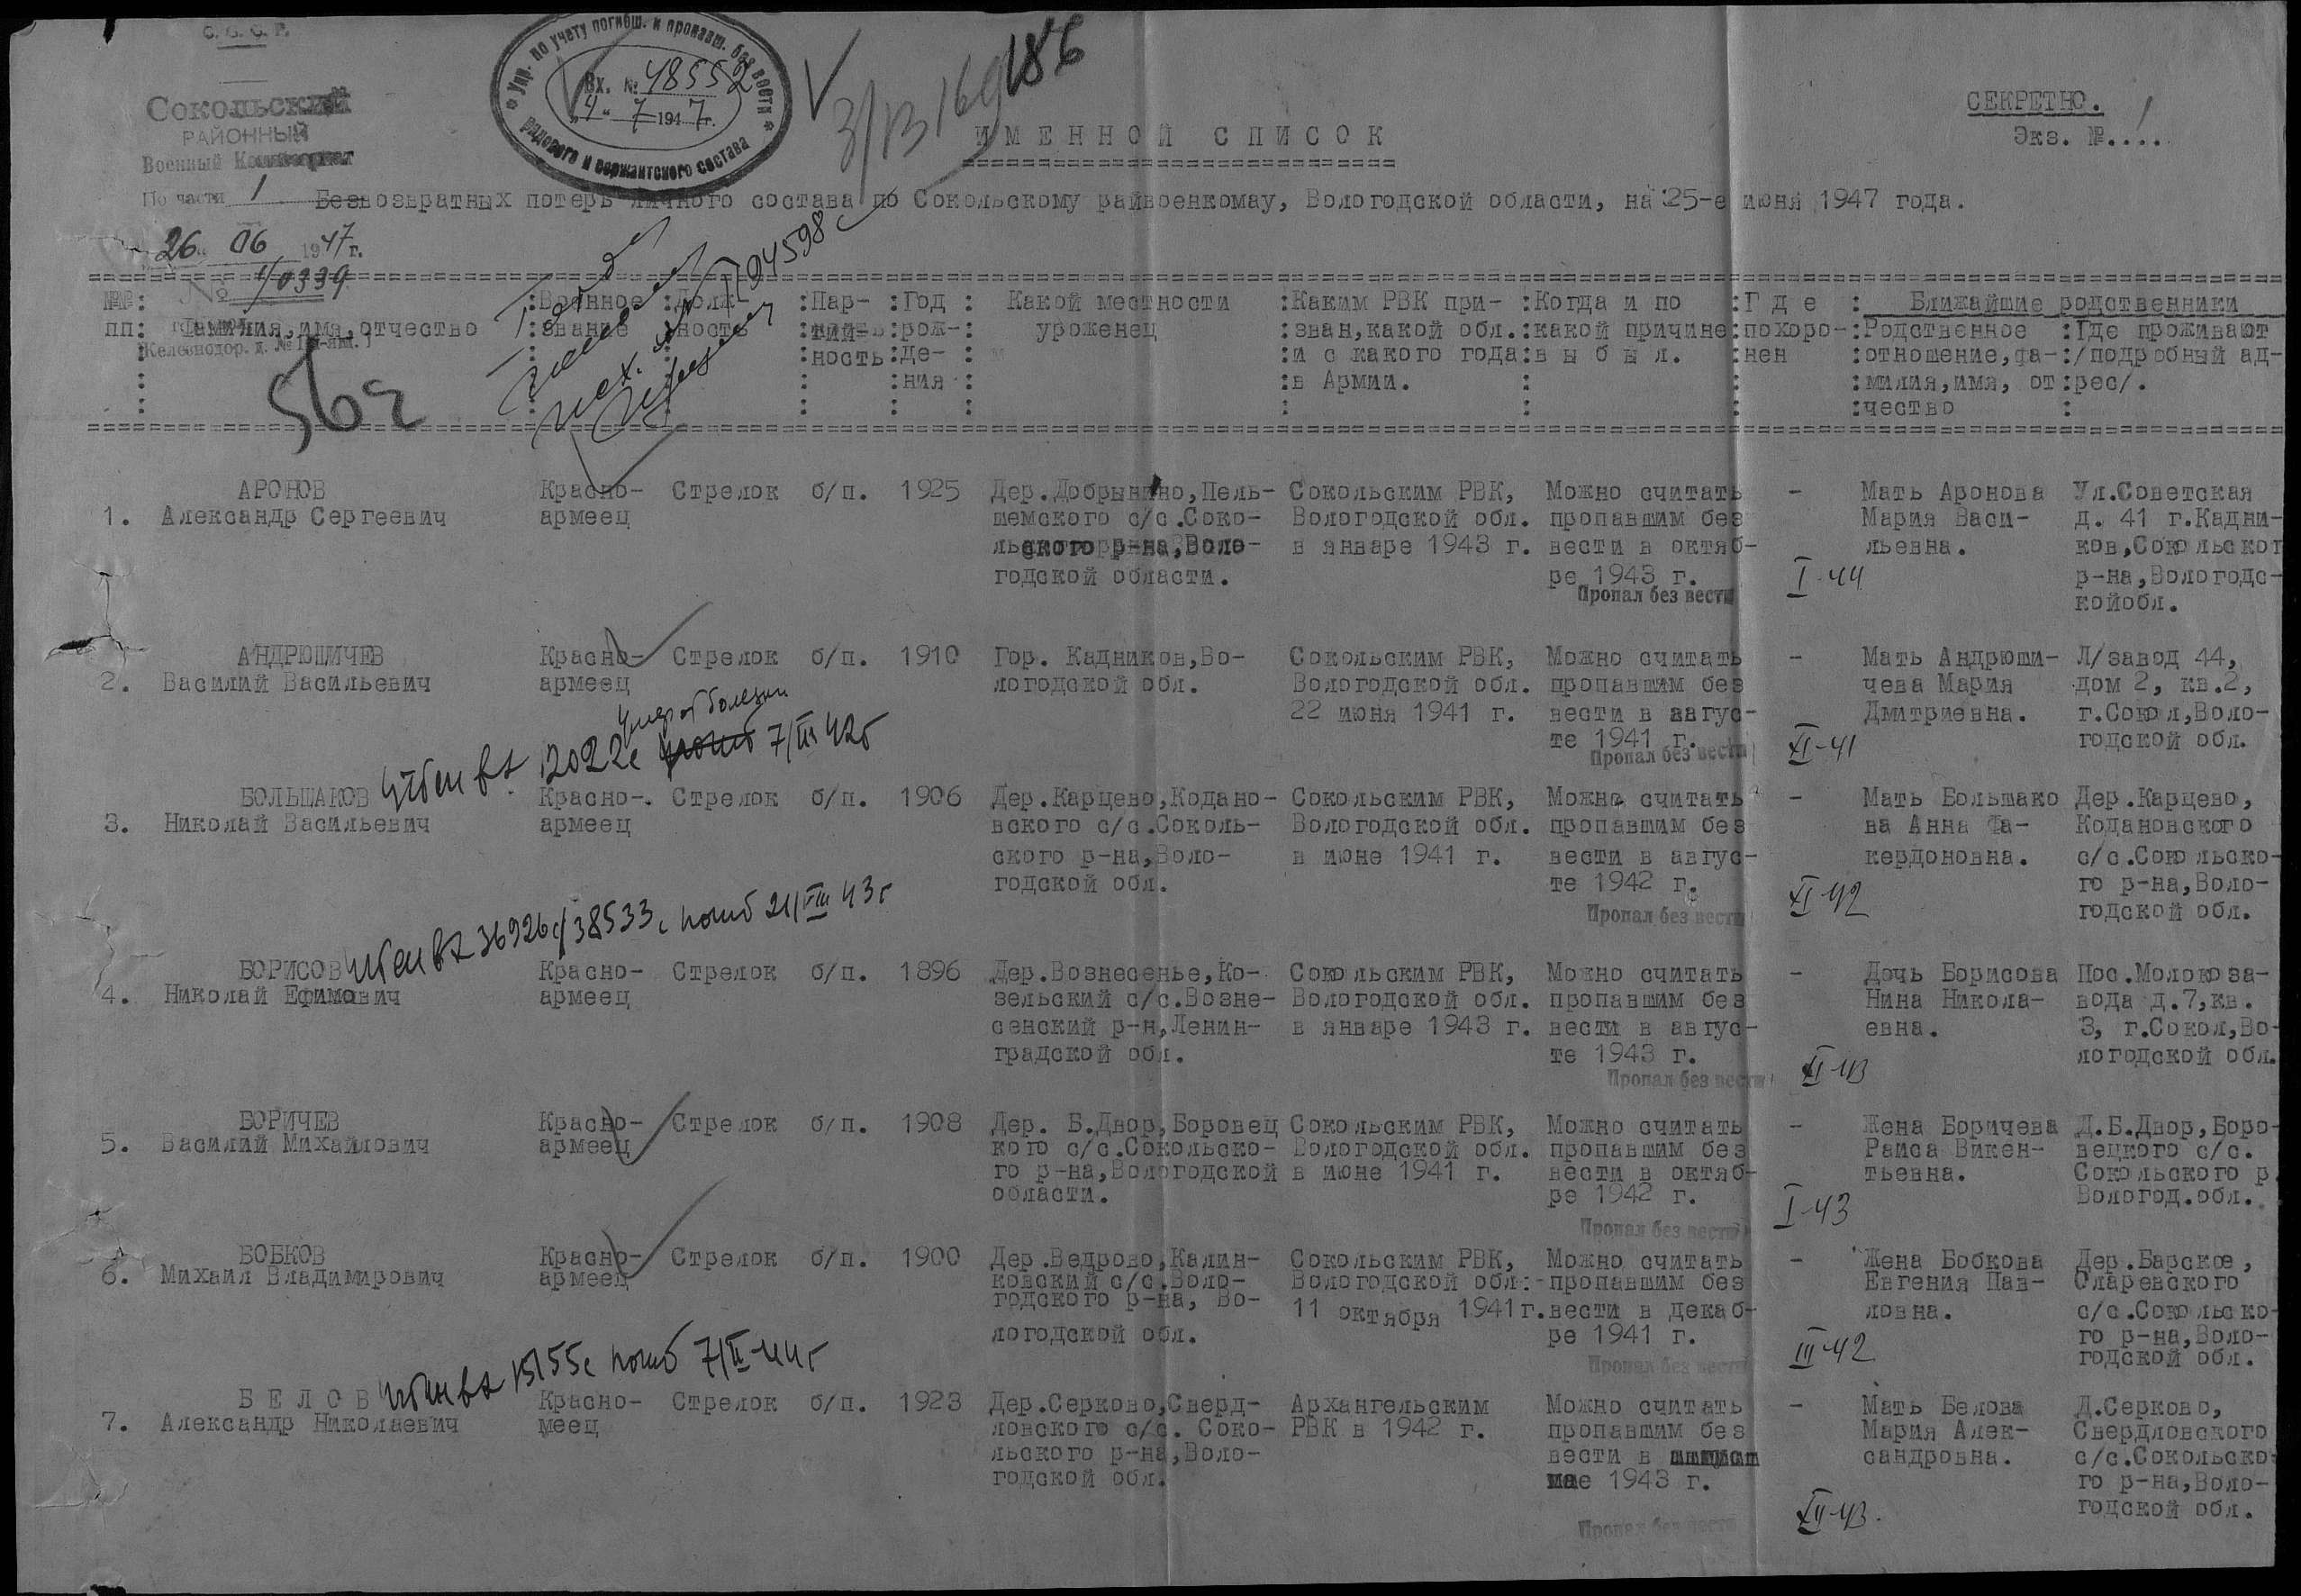 С. С. С. Р.
Сокольский
РАЙОННЫЙ
Военный Комиссариат
По части 1
26 06 1947 г.
№ 1/0339
Железнодор. д. №
Упр. по учету погибш. и пропавш. без вести
рядового и сержантского состава
Вх. № 48552
"4" 7 1947 г.
186
СЕКРЕТНО.
Экз. № 1....
ИМЕННОЙ СПИСОК
Безвозвратных потерь личного состава по Сокольскому райвоенкомау, Вологодской области, на 25-е июня 1947 года.
94598с
56с
№№ пп
Фамилия, имя, отчество
Военное звание
Долж ность
Пар- тий- ность
Год рож- де- ния
Какой местности уроженец
Каким РВК при- зван, какой обл. и с какого года в Армии.
Когда и по какой причине выбыл.
Где похоро- нен
Ближайшие родственники
Родственное отношение, фа- милия, имя, от чество
Где проживают /подробный ад- рес/.
1. АРОНОВ
Александр Сергеевич
Красно-
армеец
Стрелок
б/п.
1925
Дер.Добрынино,Пель-
шемского с/с.Соко-
льского р-на,Воло-
годской области.
Сокольским РВК,
Вологодской обл.
в январе 1943 г.
Можно считать
пропавшим без
вести в октяб-
ре 1943 г.
Пропал без вести
-
I-44
Мать Аронова
Мария Васи-
льевна.
Ул.Советская
д. 41 г.Кадни-
ков,Сокольског
р-на,Вологодс-
койобл.
2. АНДРЮШИЧЕВ
Василий Васильевич
Красно-
армеец
Стрелок
б/п.
1910
Гор. Кадников,Во-
логодской обл.
Сокольским РВК,
Вологодской обл.
22 июня 1941 г.
Можно считать
пропавшим без
вести в авгус-
те 1941 г.
Пропал без вести
-
XI-41
Мать Андрюши-
чева Мария
Дмитриевна.
Л/завод 44,
дом 2, кв.2,
г.Сокол,Воло-
годской обл.
умер от болезни
учтен вх 12022с погиб 7/III 42г
3. БОЛЬШАКОВ
Николай Васильевич
Красно-
армеец
Стрелок
б/п.
1906
Дер.Карцево,Кодано-
вского с/с.Соколь-
ского р-на,Воло-
годской обл.
Сокольским РВК,
Вологодской обл.
в июне 1941 г.
Можно считать
пропавшим без
вести в авгус-
те 1942 г.
Пропал без вести
-
XI-42
Мать Большако
ва Анна Фа-
кердоновна.
Дер.Карцево,
Кодановского
с/с.Сокольско-
го р-на,Воло-
годской обл.
учтен вх 36926с/38533с погиб 21/VIII 43г
4. БОРИСОВ
Николай Ефимович
Красно-
армеец
Стрелок
б/п.
1896
Дер.Вознесенье,Ко-
зельский с/с.Возне-
сенский р-н,Ленин-
градской обл.
Сокольским РВК,
Вологодской обл.
в январе 1943 г.
Можно считать
пропавшим без
вести в авгус-
те 1943 г.
Пропал без вести
-
XI-43
Дочь Борисова
Нина Никола-
евна.
Пос.Молокоза-
вода д.7,кв.
3, г.Сокол,Во-
логодской обл.
5. БОРИЧЕВ
Василий Михайлович
Красно-
армеец
Стрелок
б/п.
1908
Дер. Б.Двор,Боровец
кого с/с.Сокольско-
го р-на,Вологодской
области.
Сокольским РВК,
Вологодской обл.
в июне 1941 г.
Можно считать
пропавшим без
вести в октяб-
ре 1942 г.
Пропал без вести
-
I-43
Жена Боричева
Раиса Викен-
тьевна.
Д.Б.Двор,Боро-
вецкого с/с.
Сокольского р.
Вологод.обл.
6. БОБКОВ
Михаил Владимирович
Красно-
армеец
Стрелок
б/п.
1900
Дер.Ведрово,Калин-
ковский с/с.Воло-
годского р-на, Во-
логодской обл.
Сокольским РВК,
Вологодской обл.-
11 октября 1941г.
Можно считать
пропавшим без
вести в декаб-
ре 1941 г.
Пропал без вести
-
III-42
Жена Бобкова
Евгения Пав-
ловна.
Дер.Барское,
Оларевского
с/с.Сокольско-
го р-на,Воло-
годской обл.
учтен вх 15155с погиб 7/II-44г
7. БЕЛОВ
Александр Николаевич
Красно-
меец
Стрелок
б/п.
1923
Дер.Серково,Сверд-
ловского с/с. Соко-
льского р-на,Воло-
годской обл.
Архангельским
РВК в 1942 г.
Можно считать
пропавшим без
вести в
мае 1943 г.
Пропал без вести
-
XII-43.
Мать Белова
Мария Алек-
сандровна.
Д.Серково,
Свердловского
с/с.Сокольско-
го р-на,Воло-
годской обл.